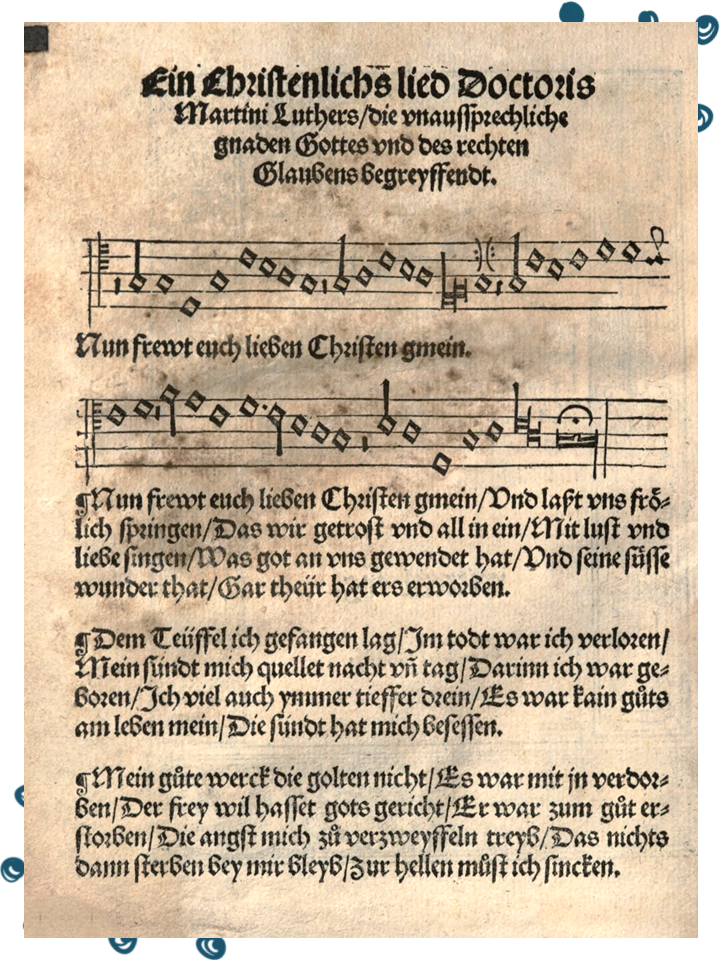 Ein Christenlichs lied Doctoris
Martini Luthers/die vnaussprechliche
gnaden Gottes vnd des rechten
Glaubens begreyffendt.
Nun frewt euch lieben Christen gmein.
¶Nun frewt euch lieben Christen gmein/Vnd laßt vns frö⸗
lich springen/Das wir getrost vnd all in ein/Mit lust vnd
liebe singen/Was got an vns gewendet hat/Vnd seine süsse
wunder that/Gar theür hat ers erworben.
¶Dem Teüffel ich gefangen lag/Im todt war ich verloren/
Mein sündt mich quellet nacht vñ tag/Darinn ich war ge⸗
boren/Ich viel auch ymmer tieffer drein/Es war kain gůts
am leben mein/Die sündt hat mich besessen.
¶Mein gůte werck die golten nicht/Es war mit jn verdor⸗
ben/Der frey wil hasset gots gericht/Er war zum gůt er⸗
storben/Die angst mich zů verzweyffeln treyb/Das nichts
dann sterben bey mir bleyb/Zur hellen můst ich sincken.